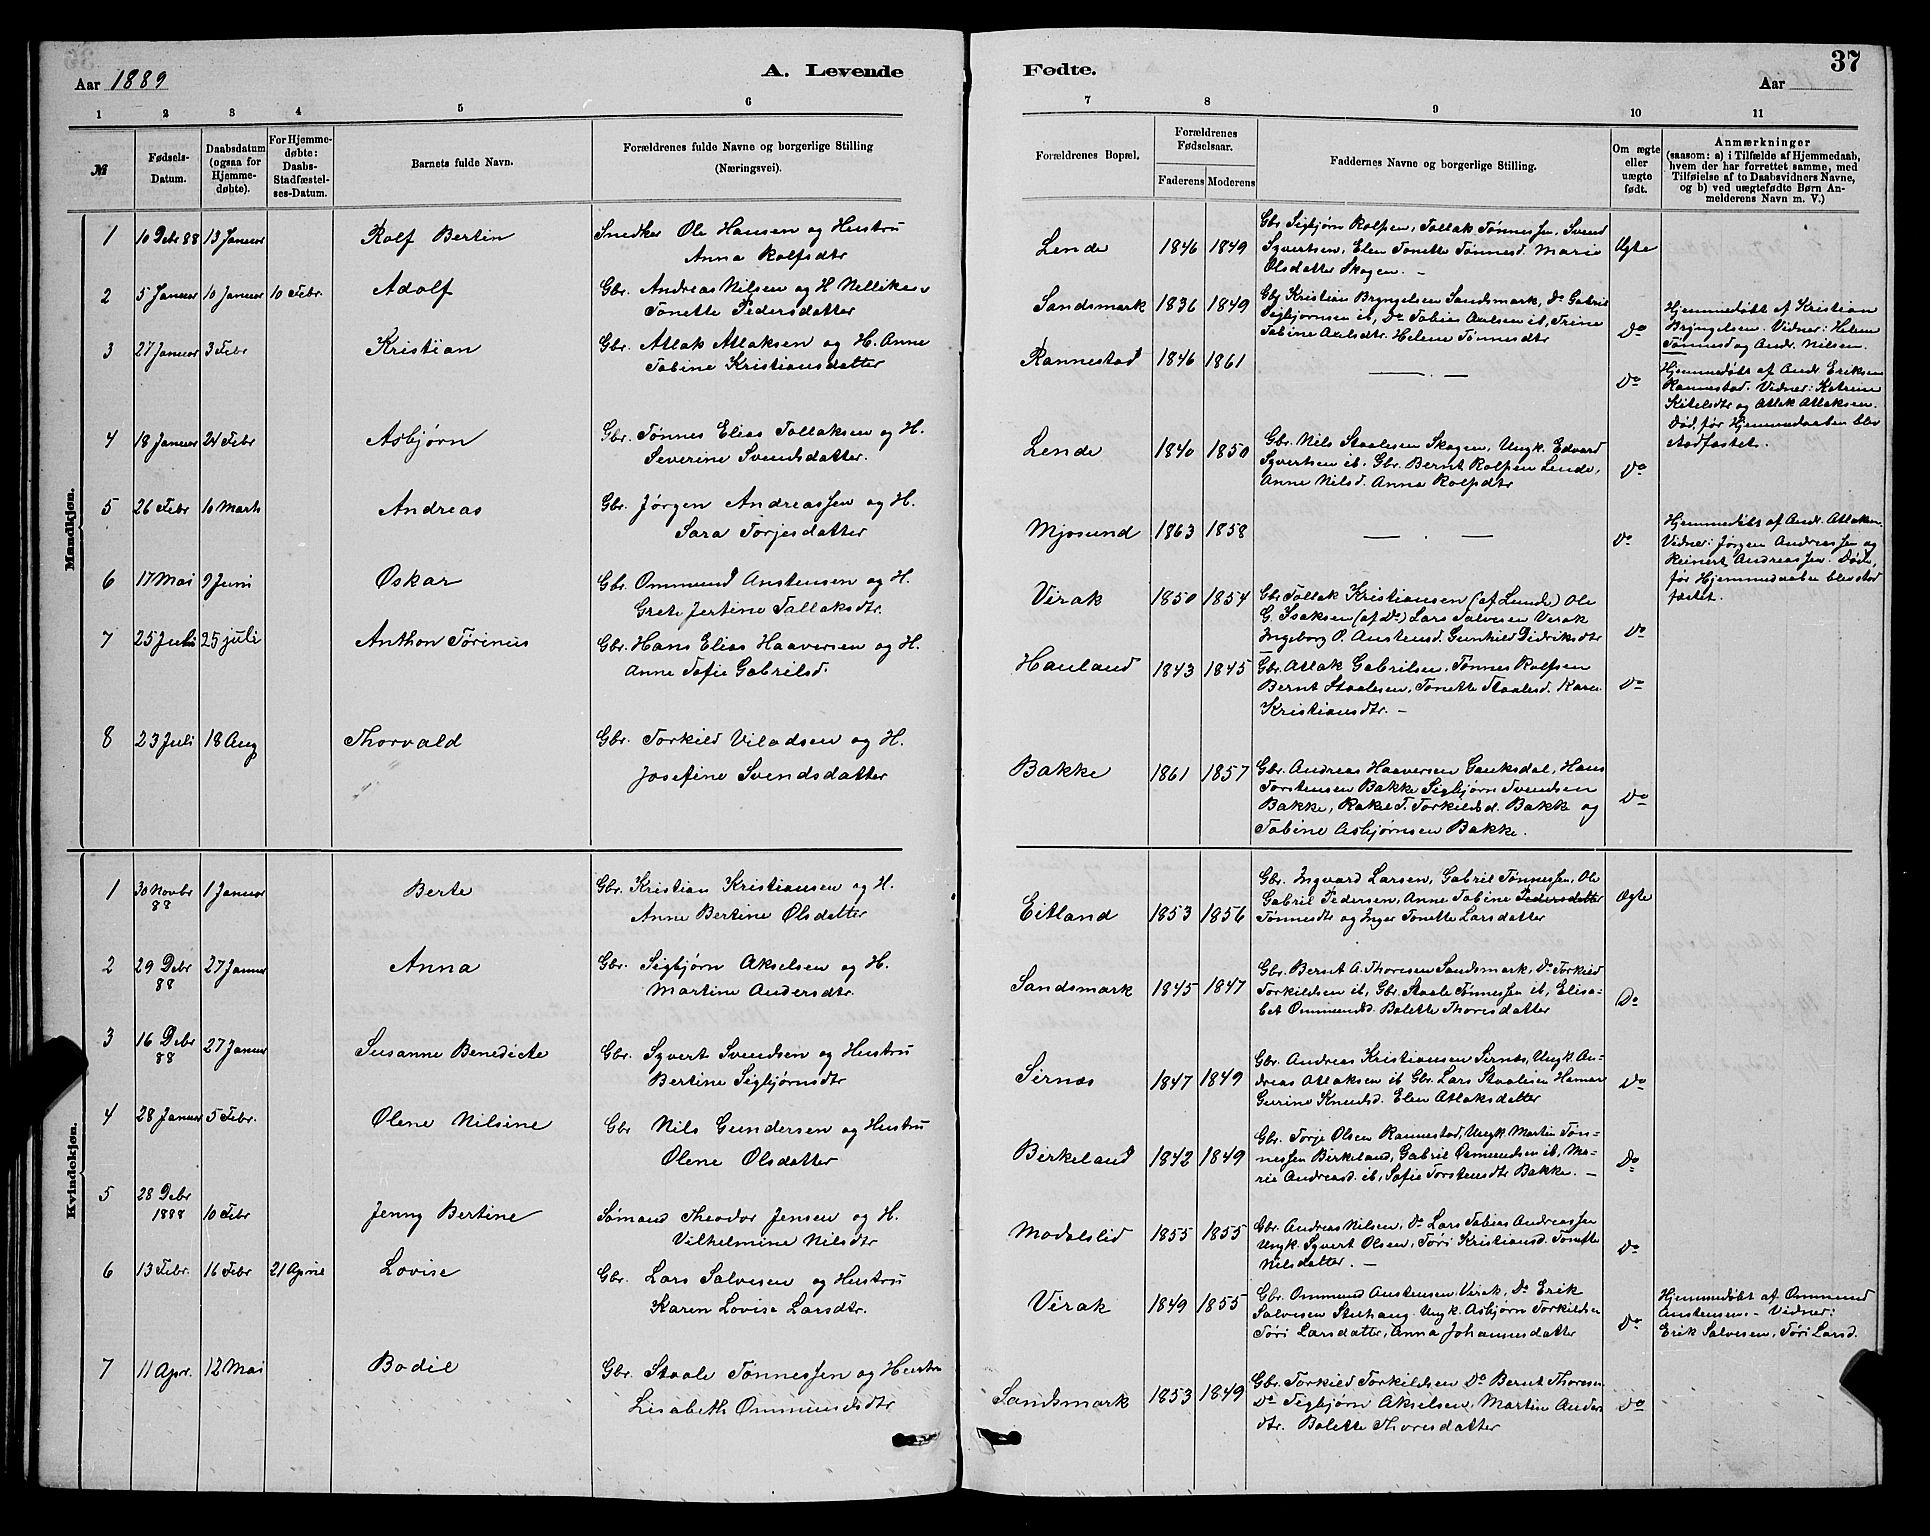 Aar 1889
A. Levende
1 2 3 4 5 6
№
Fødsels-Datum.
Daabsdatum (ogsaa for Hjemmedøbte).
For Hjemmedøbte: Daabs-Stadfæstelses-Datum.
Barnets fulde Navn.
Forældrenes fulde Navne og borgerlige Stilling
(Næringsvei).
Mandkjøn.
1 10 Debr 88 13 Januar Rolf Bertin Snedker Ole Hansen og Hustru
Anna Rolfsdtr
2 5 Januar 10 Januar 10 Febr. Adolf Gbr. Andreas Nilsen og H Nellike
Tonette Pedersdatter
3 27 Januar 3 Febr Kristian Gbr. Atlak Atlaksen og H. Anne
Tabine Kristiansdatter
4 18 Januar 24 Febr Asbjørn Gbr. Tønnes Elias Tollaksen og H.
Severine Svendsdatter.
5 26 Febr 10 Marts Andreas Gbr. Jørgen Andreassen og H.
Sara Torjesdatter
6 17 Mai 9 Juni Oskar Gbr. Ommund Anstensen og H.
Grete Jertine Tallaksdtr.
7 25 Juli 25 juli Anthon Tørinus Gbr. Hans Elias Haaversen og H.
Anne Sofie Gabrilsd.
8 23 Juli 18 Aug Thorvald Gbr. Torkild Viladsen og H.
Josefine Svendsdatter
Kvindekjøn.
1 30 Novbr 88 1 Januar Berte Gbr. Kristian Kristiansen og H.
Anne Bertine Olsdatter
2 29 Debr 88 27 Januar Anna Gbr. Sigbjørn Akselsen og H.
Martine Andersdtr.
3 16 Debr 88 27 Januar Susanne Benedicte Gbr. Syvert Svendsen og Hustru
Bertine Sigbjørnsdtr
4 28 Januar 5 Febr. Olene Nilsine Gbr Nils Gundersen og Hustru
Olene Olsdatter
5 28 Debr 1888 10 Febr Jenny Bertine Sømand Theodor Jensen og H.
Vilhelmine Nilsdtr
6 13 Febr. 16 Febr 21 Aprile Lovise Gbr. Lars Salvesen og Hustru
Karen Lovise Larsdtr.
7 11 Apr. 12 Mai Bodil Gbr. Staale Tønnessen og Hustru
Lisabeth Ommundsdtr
Fødte.
37
Aar
7 8 9 10 11
Forældrenes Bopæl.
Forældrenes Fødselsaar.
Faderens Moderens
Faddernes Navne og borgerlige Stilling.
Om ægte eller uægte født.
Anmærkninger
(saasom: a) i Tilfælde af Hjemmedaab, hvem der har forrettet samme, med Tilføielse af to Daabsvidners Navne, og b) ved uægtefødte Børn Anmelderens Navn m. V.)
Lende 1846 1849 Gbr Sigbjørn Rolfsen, Tollak Tønnessen, Svend
Syvertsen, Elen Tonette Tønnesd. Marie
Olsdatter Skogen. —
Ægte
Sandsmark 1836 1849 Gbr Kristian Bryngelsen Sandsmark, Do Gabriel
Sigbjørnsen ib, Do Tobias Axelsen ib, Trine
Tabine Axelsdtr. Helene Tønnesdtr
Do
Hjemmedøbt af Kristian
Bryngelsen. Vidner: Helene
Tønnesd og Andr. Nilsen.
Rannestad 1846 1861 — . —
Do
Hjemmedøbt af Andr Eriksen
Rannestad. Vidner: Katrine
Kitelsdtr og Atlak Atlaksen.
Død, før Hjemmedaaben blev
stadfæstet.
Lende 1840 1850 Gbr. Nils Staalesen Skogen, Ungk. Edvard
Syvertsen ib. Gbr. Bernt Rolfsen Lende,
Anne Nilsd. Anna Rolfsdtr
Do
Mjosund 1863 1858 — . —
Do
Hjemmedøbt af Andr. Atlaksen.
Vidner: Jørgen Andreassen og
Reinert Andreassen. Døde,
før Hjemmedaaben blev stad
fæstet.
Virak 1850 1854 Gbr Tollak Kristiansen (af Lunde) Ole
G. Isaksen (af Do) Lars Salvesen Virak
Ingeborg P. Anstensd. Gunhild Didriksdtr
Do
Hauland 1843 1845 Gbr. Atlak Gabrilsen, Tønnes Rolfsen
Bernt Staalesen, Tonette Staalesd. Karen
Kristiansdtr. —
Do
Bakke 1861 1857 Gbr. Andreas Haaversen Gauksdal, Hans
Torstensen Bakke Sigbjørn Svendsen
Bakke, Rakel T. Torkildsd. Bakke og
Tabine Asbjørnsen Bakke.
Do
Eitland 1853 1856 Gbr. Ingvard Larsen, Gabriel Tønnessen, Ole
Gabriel Pedersen, Anne Tabine Pedersdatter
Tønnesdtr og Inger Tonette Larsdatter
Ægte
Sandsmark 1845 1847 Gbr. Bernt A. Thoresen Sandsmark, Do Torkild
Torkildsen ib, Gbr. Staale Tønnessen ib, Elisa-
bet Ommundsd. Bolette Thoresdatter
Do
Sirnæs 1847 1849 Gbr. Andreas Kristiansen Sirnæs, Ungk. An-
dreas Atlaksen ib Gbr. Lars Staalesen Hamar
Gurine Knudsd. Elen Atlaksdatter
Do
Birkeland 1842 1849 Gbr. Torje Olsen Rannestad, Ungk. Martin Tøn-
nessen Birkeland, Gabriel Omundsen ib, Ma-
rie Andreasd. ib, Sofie Torstensdtr Bakke. —
Do
Modalslid 1855 1855 Gbr. Andreas Nilsen, Do Lars Tobias Andreassen
Ungk. Syvert Olsen, Tøri Kristiansd. Tonette
Nilsdatter. —
Do
Virak 1849 1855 Gbr. Ommund Anstensen Virak, Do Erik
Salvesen Stuhaug. Ungk. Asbjørn Torkildsen
Tøri Larsdatter, Anna Johannesdatter
Do
Hjemmedøbt af Ommund
Anstensen. Vidner:
Erik Salvesen, Tøri Larsd.
Sandsmark 1853 1849 Gbr. Torkild Torkildsen Do Bernt Thoresen
Do Sigbjørn Akselsen, Martin Anders
dtr. Bolette Thoresdatter
Do